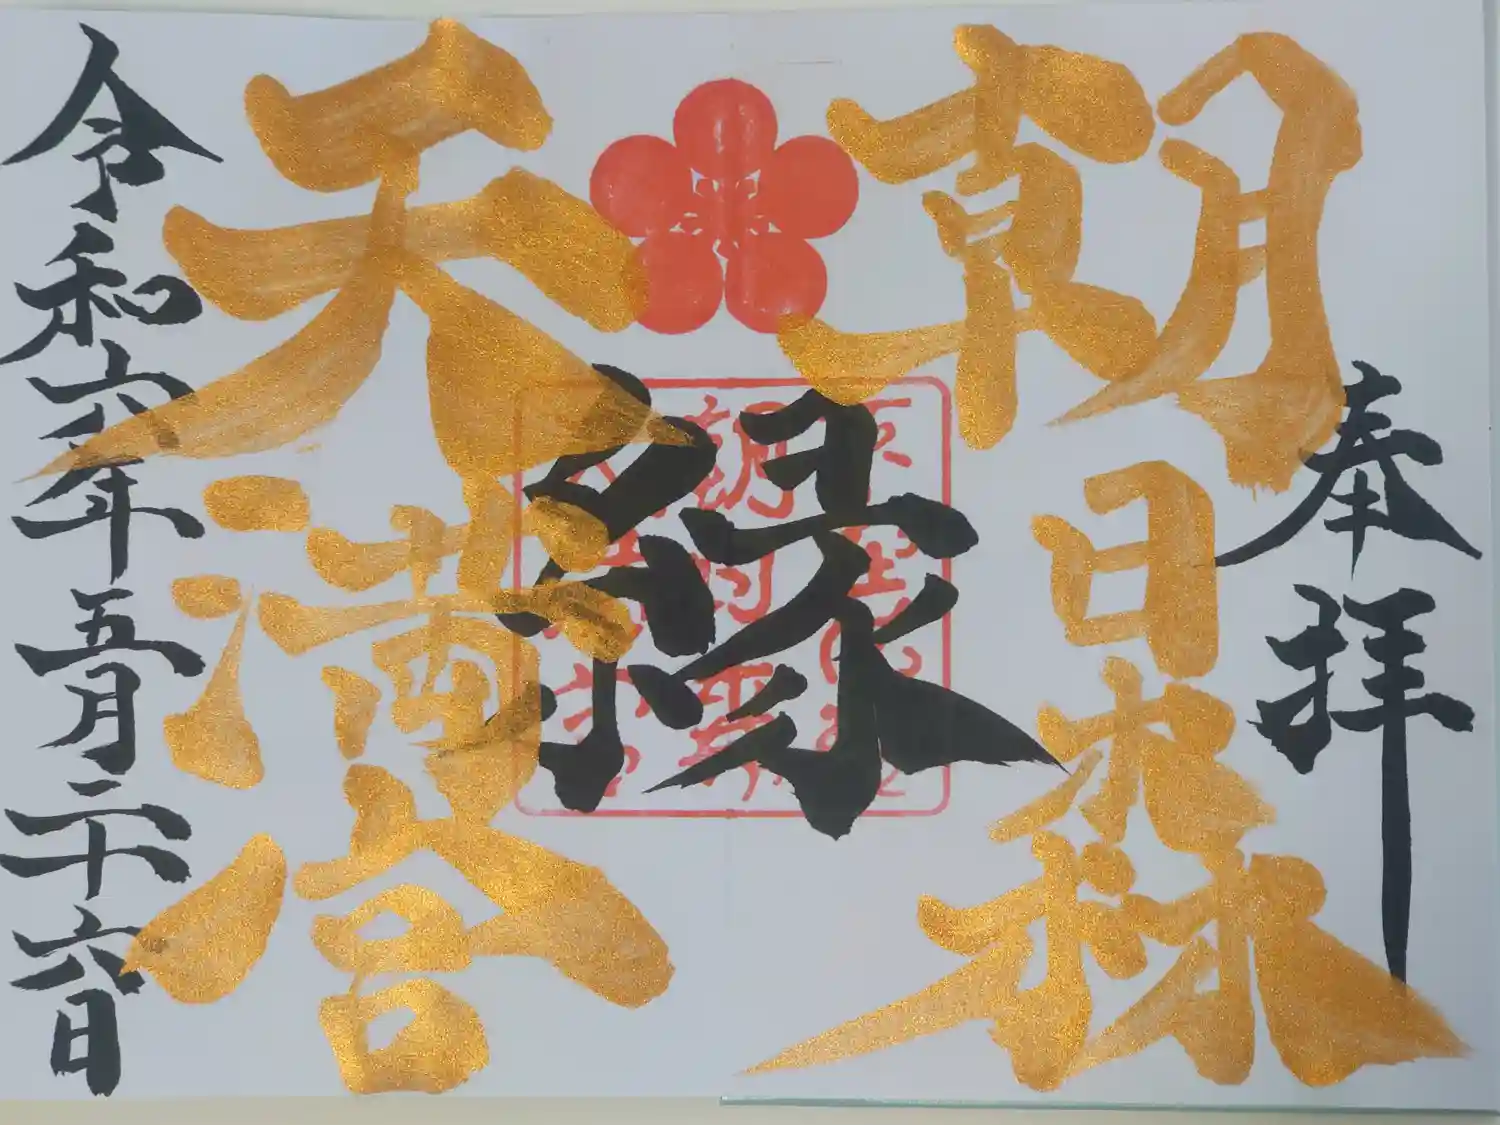 奉拝
朝日森
縁
天満宮
令和六年五月二十六日